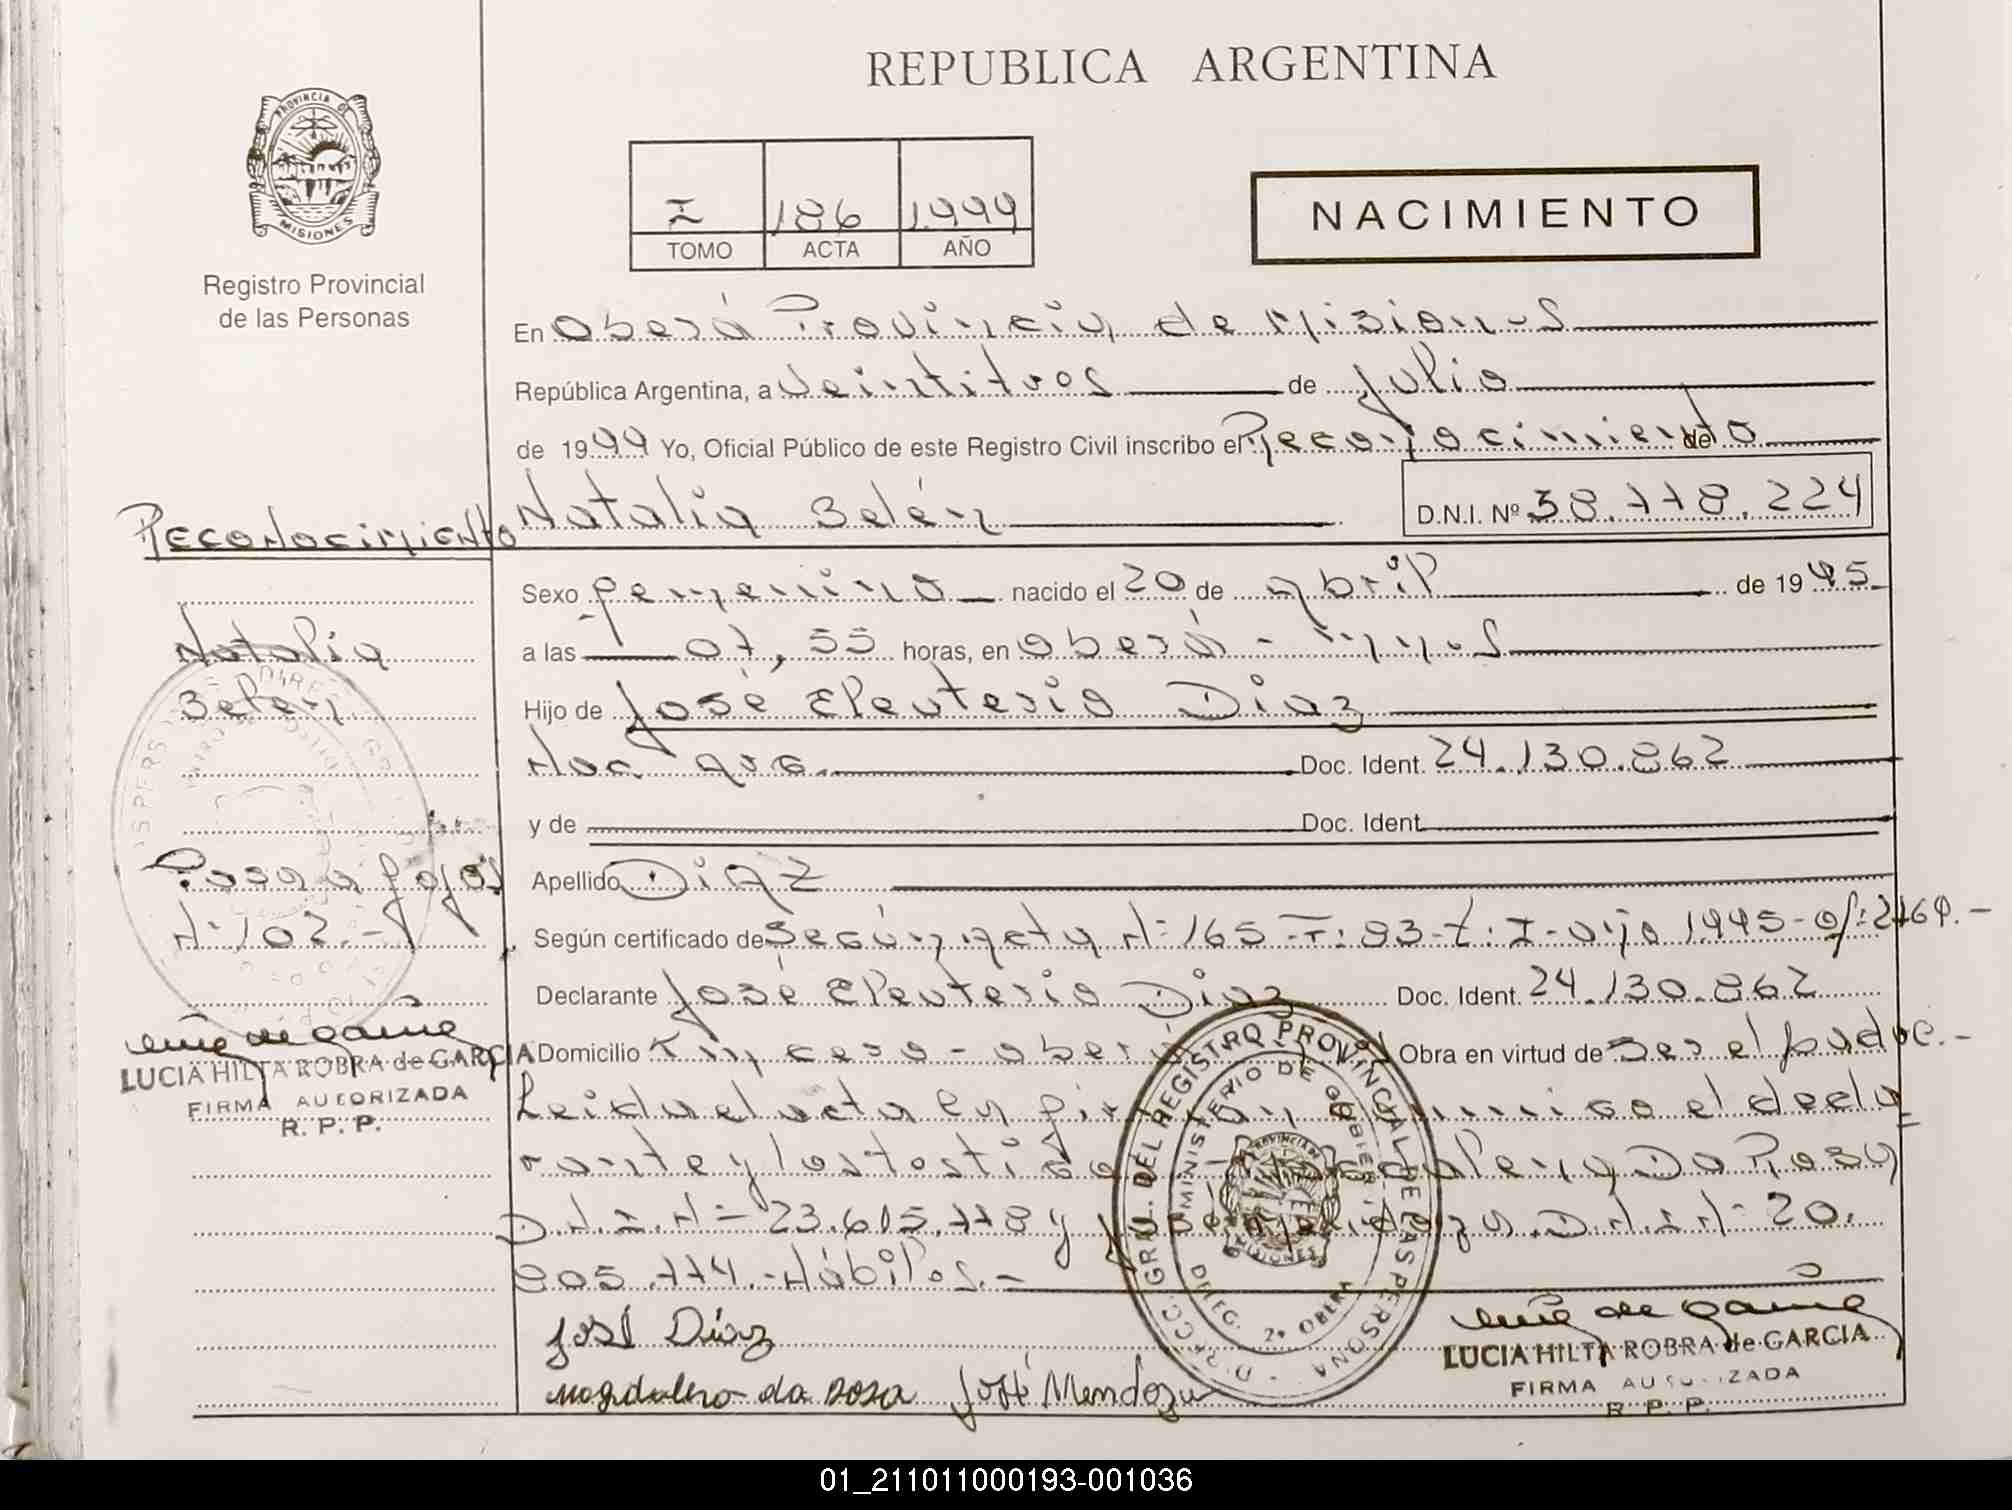 REPUBLICA ARGENTINA
PROVINCIA DE
MISIONES
Registro Provincial
de las Personas
I 186 1.999
TOMO ACTA AÑO
NACIMIENTO
En Oberá Provincia de Misiones
República Argentina, a veintitres de julio
de 1999 Yo, Oficial Público de este Registro Civil inscribo el Reconocimiento de
Natalia Belén D.N.I. Nº 38.778.224
Reconocimiento
Natalia
Belén
Pasa a fojas
Nº 102.-
LUCIA HILTA ROBRA de GARCIA
FIRMA AUTORIZADA
R. P. P.
Sexo femenino nacido el 20 de abril de 1995
a las 07,55 horas, en Oberá - Mnes
Hijo de José Eleuterio Diaz
Doc. Ident. 24.130.862
y de Doc. Ident.
Apellido Diaz
Según certificado de Según acta Nº 165 - T: 93 - t: I - año 1995-
Declarante José Eleuterio Diaz Doc. Ident. 24.130.862
Domicilio - Oberá Obra en virtud de ser el padre.-
Leida el acta la firman conmigo el decla
rante y los testigos Magdalena Da Rosa
D.N.I. Nº 23.615.778 y José Mendoza D.N.I. Nº 20.
905.774.- Hábiles.-
José Diaz
Magdalena da Rosa José Mendoza
DIRECC. GRAL. DEL REGISTRO PROVINCIAL DE LAS PERSONAS
MINISTERIO DE GOBIERNO
PROVINCIA DE
MISIONES
DELEG. 2ª OBERA
LUCIA HILTA ROBRA de GARCIA
FIRMA AUTORIZADA
R. P. P.
01_211011000193-001036